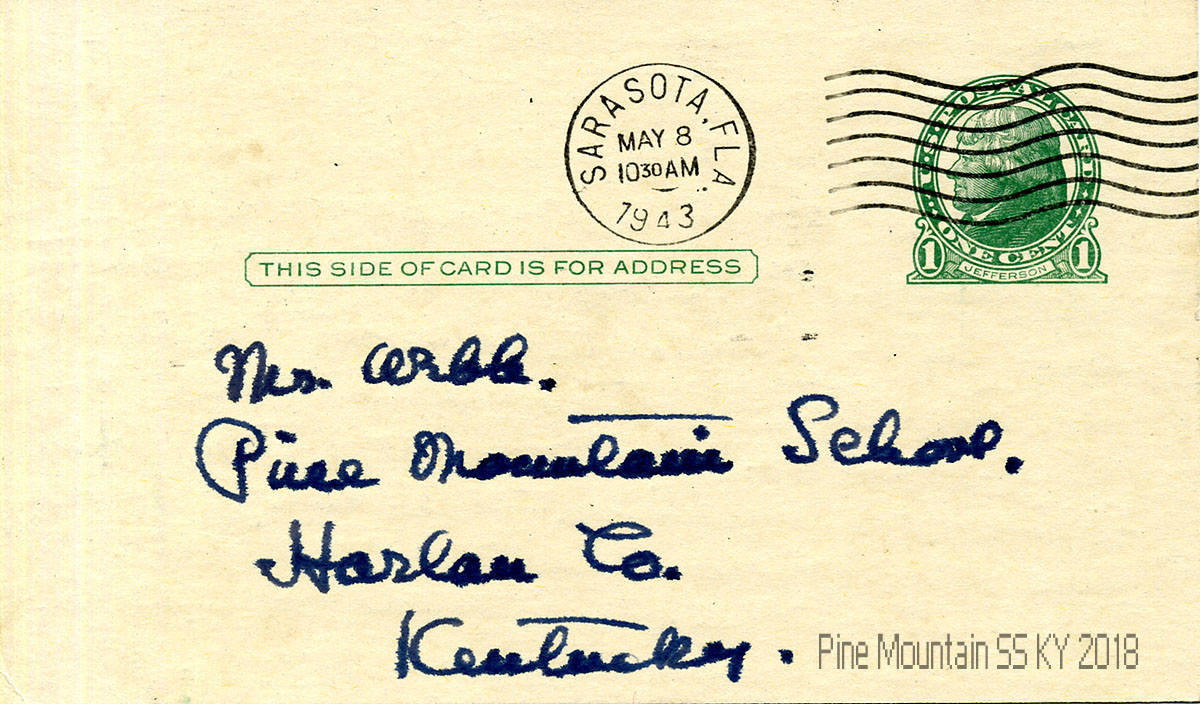 SARASOTA, FLA.
MAY 8
10 30 AM
1943
U·S·POSTAL CARD
ONE CENT
1 JEFFERSON 1
THIS SIDE OF CARD IS FOR ADDRESS
Mr. Webb.
Pine Mountain School.
Harlan Co.
Kentucky.
Pine Mountain SS KY 2018